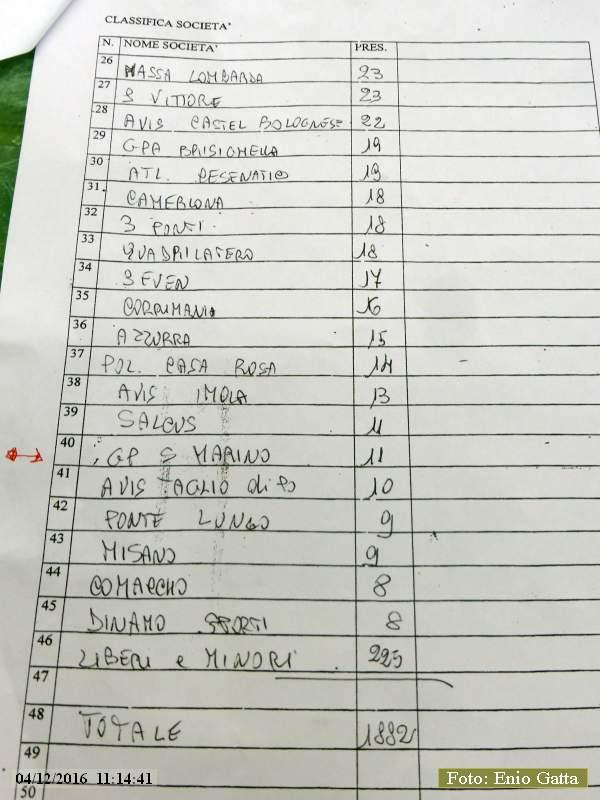 CLASSIFICA SOCIETA'
N. NOME SOCIETA' PRES.
26 MASSA LOMBARDA 23
27 S VITTORE 23
28 AVIS CASTEL BOLOGNESE 22
29 GPA BRISIGHELLA 19
30 ATL. CESENATICO 19
31 CAMERLONA 18
32 3 PONTI 18
33 QUADRILATERO 18
34 SEVEN 17
35 CORRIMANIA 16
36 AZZURRA 15
37 POL. CASA ROSA 14
38 AVIS IMOLA 13
39 SALCUS 11
40 GP S MARINO 11
41 AVIS TAGLIO di Po 10
42 PONTE LUNGO 9
43 MISANO 9
44 COMACCHIO 8
45 DINAMO SPORT 8
46 LIBERI e MINORI 225
47
48 TOTALE 1882
49
50
04/12/2016 11:14:41
Foto: Enio Gatta